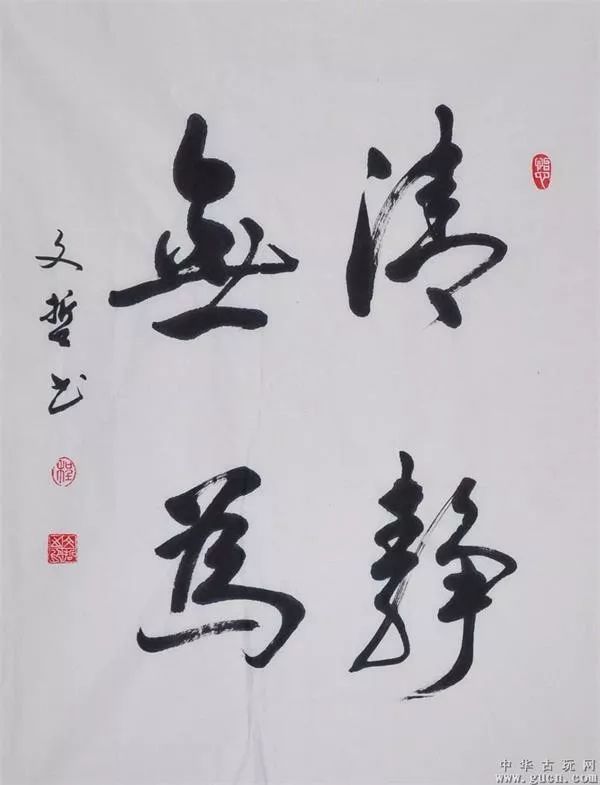 清靜
無為
文哲书
中华古玩网
www.gucn.com